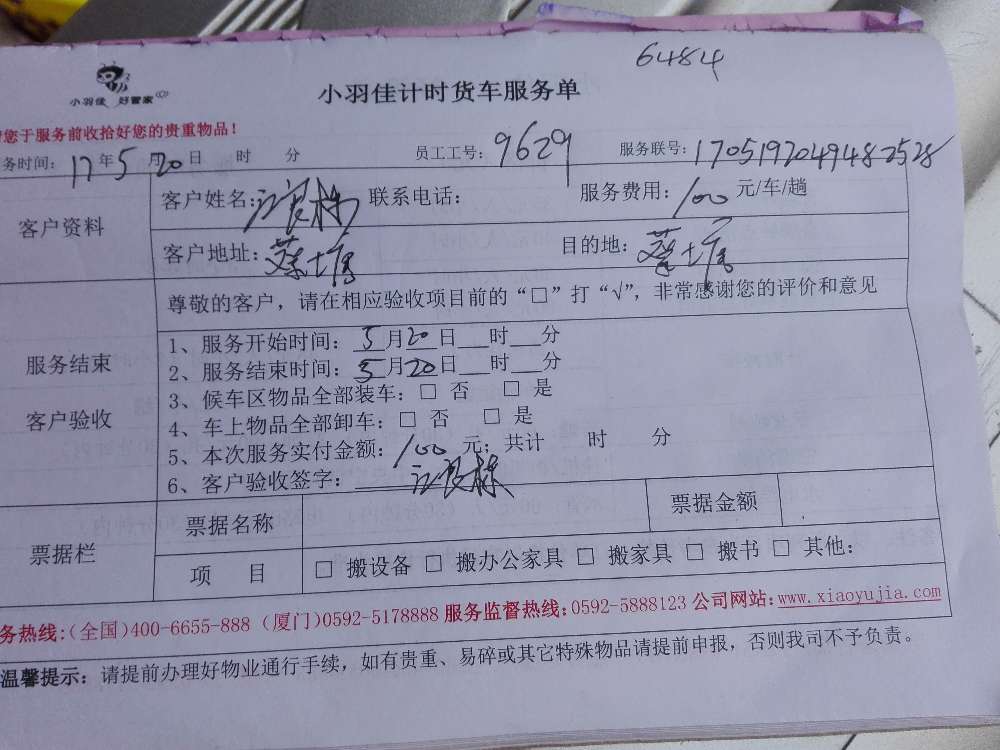 6484
小羽佳 好管家
小羽佳计时货车服务单
您于服务前收拾好您的贵重物品！
务时间：17年5月20日 时 分 员工工号：9629 服务联号：1705192049482528
客户资料
客户姓名：江良栋 联系电话： 服务费用：100元/车/趟
客户地址：蔡塘 目的地：蔡塘
尊敬的客户，请在相应验收项目前的“□”打“√”，非常感谢您的评价和意见
服务结束
客户验收
1、服务开始时间：5月20日 时 分
2、服务结束时间：5月20日 时 分
3、候车区物品全部装车：□ 否 □ 是
4、车上物品全部卸车：□ 否 □ 是
5、本次服务实付金额：100元；共计 时 分
6、客户验收签字：江良栋
票据栏
票据名称 票据金额
项 目 □ 搬设备 □ 搬办公家具 □ 搬家具 □ 搬书 □ 其他：
务热线：(全国)400-6655-888 (厦门)0592-5178888 服务监督热线：0592-5888123 公司网站：www.xiaoyujia.com
温馨提示：请提前办理好物业通行手续，如有贵重、易碎或其它特殊物品请提前申报，否则我司不予负责。